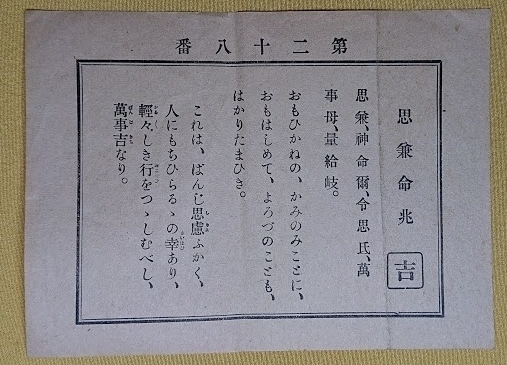 第二十八番
思兼命兆
吉
思兼、神命爾、令思氐、萬
事母、量給岐。
おもひかねの、かみのみことに、
おもはしめて、よろづのことも、
はかりたまひき。
これは、ばんじ思慮ふかく、
人にもちひらるゝの幸あり、
輕々しき行をつゝしむべし、
萬事吉なり。